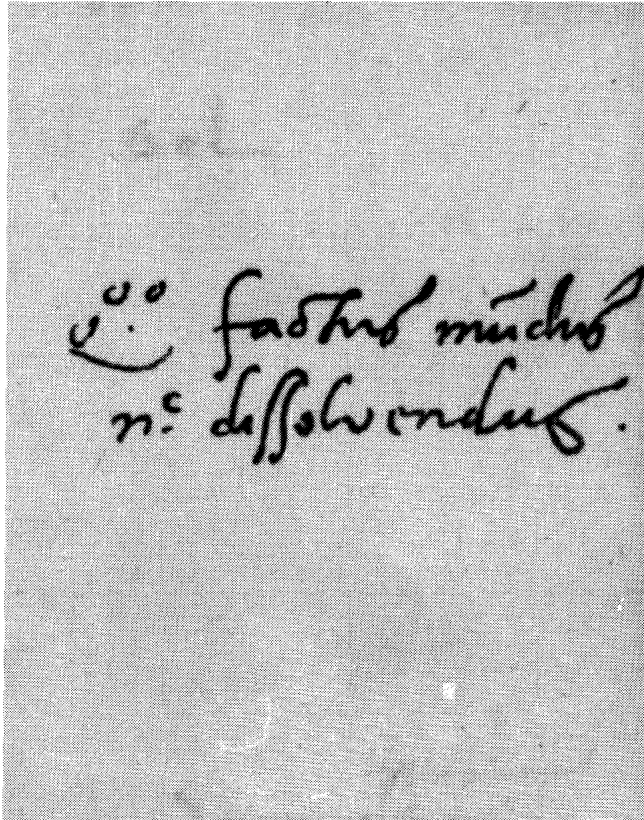 factus mūdus
nᶜ. dissolvendus.